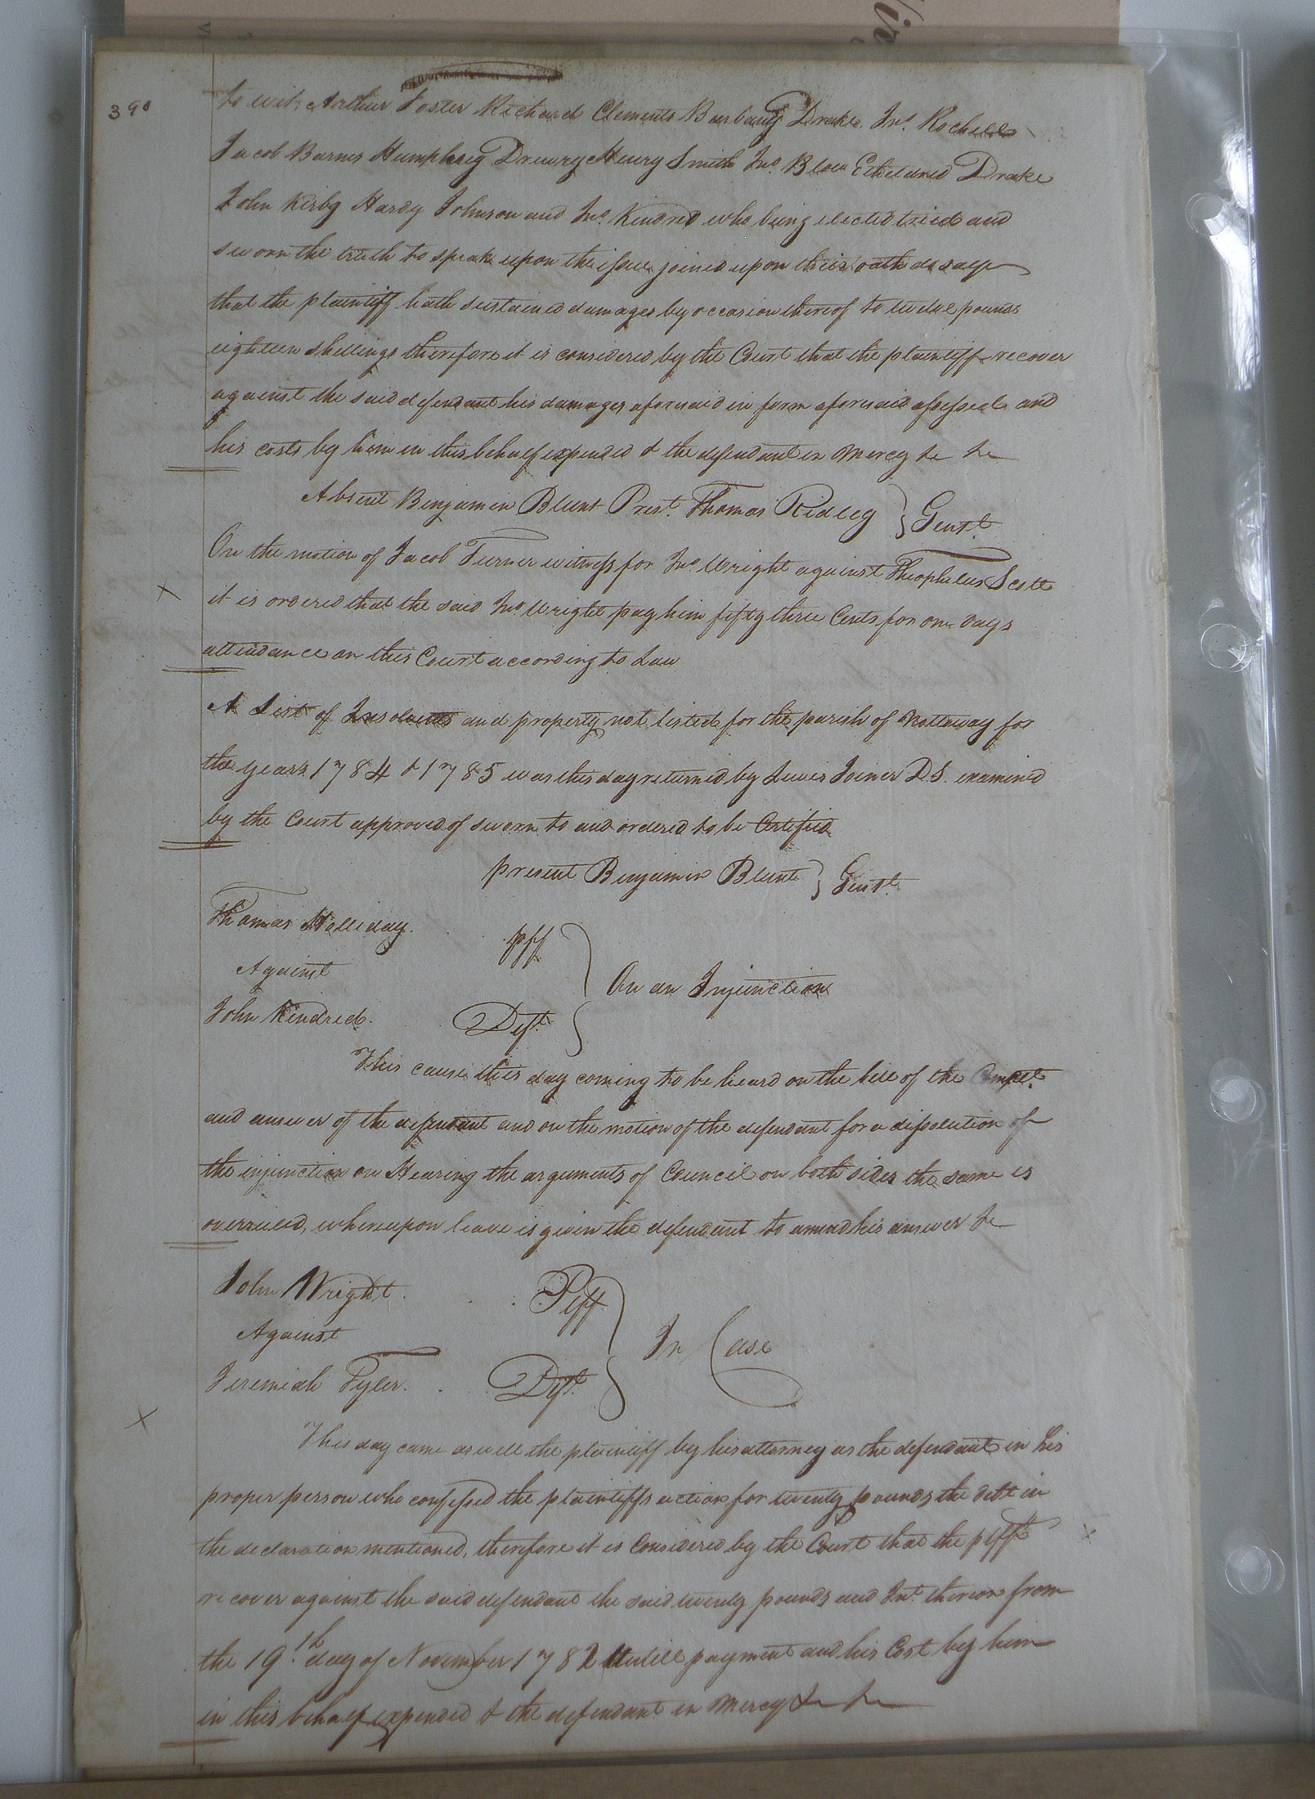 390
to wit, Arthur Foster Richard Clements Barbary Drake. Jno. Rochell
Jacob Barnes Humphrey Drewry Henry Smith Jno. Blow Etheldred Drake
John Kirby Hardy Johnson and Jno. Kindred who being elected tried and
sworn the truth to speak upon the issue joined upon their oath do say
that the plaintiff hath sustained damages by occasion thereof to twelve pounds
eighteen shillings therefore it is considered by the Court that the plaintiff recover
against the said defendant his damages aforesaid in form aforesaid assessed and
his costs by him in this behalf expended & the defendant in Mercy &c &c
Absent Benjamin Blunt Prest. Thomas Ridley } Gent.
On the motion of Jacob Turner witness for Jno Wright against Theophilus Scott
it is ordered that the said Jno Wright pay him fifty three Cents for one days
attendance on this Court according to Law
A List of Insolvents and property not listed for the parish of Nottoway for
the years 1784 & 1785 was this day returned by Lewis Joiner D.S. examined
by the Court approved of sworn to and ordered to be Certified
present Benjamin Blunt } Gent.
Thomas Holliday. plff
Against } On an Injunction
John Kindred. Deft.
This cause this day coming to be heard on the bill of the Complt.
and answer of the defendant and on the motion of the defendant for a dissolution of
the injunction on Hearing the arguments of Council on both sides the same is
overruled, whereupon leave is given the defendant to amend his answer &c
John Wright. Plff
Against } In Case
Jeremiah Tyler. Deft.
This day came as well the plaintiff by his attorney as the defendant in his
proper person who confessed the plaintiffs action for twenty pounds the debt in
the declaration mentioned, therefore it is Considered by the Court that the plff
recover against the said defendant the said twenty pounds and Int. thereon from
the 19th. day of November 1782 Untill payment and his Cost by him
in this behalf expended & the defendant in Mercy &c &c